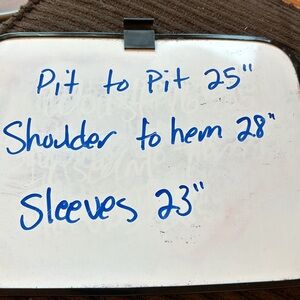 Pit to Pit 25"
Shoulder to hem 28"
Sleeves 23"